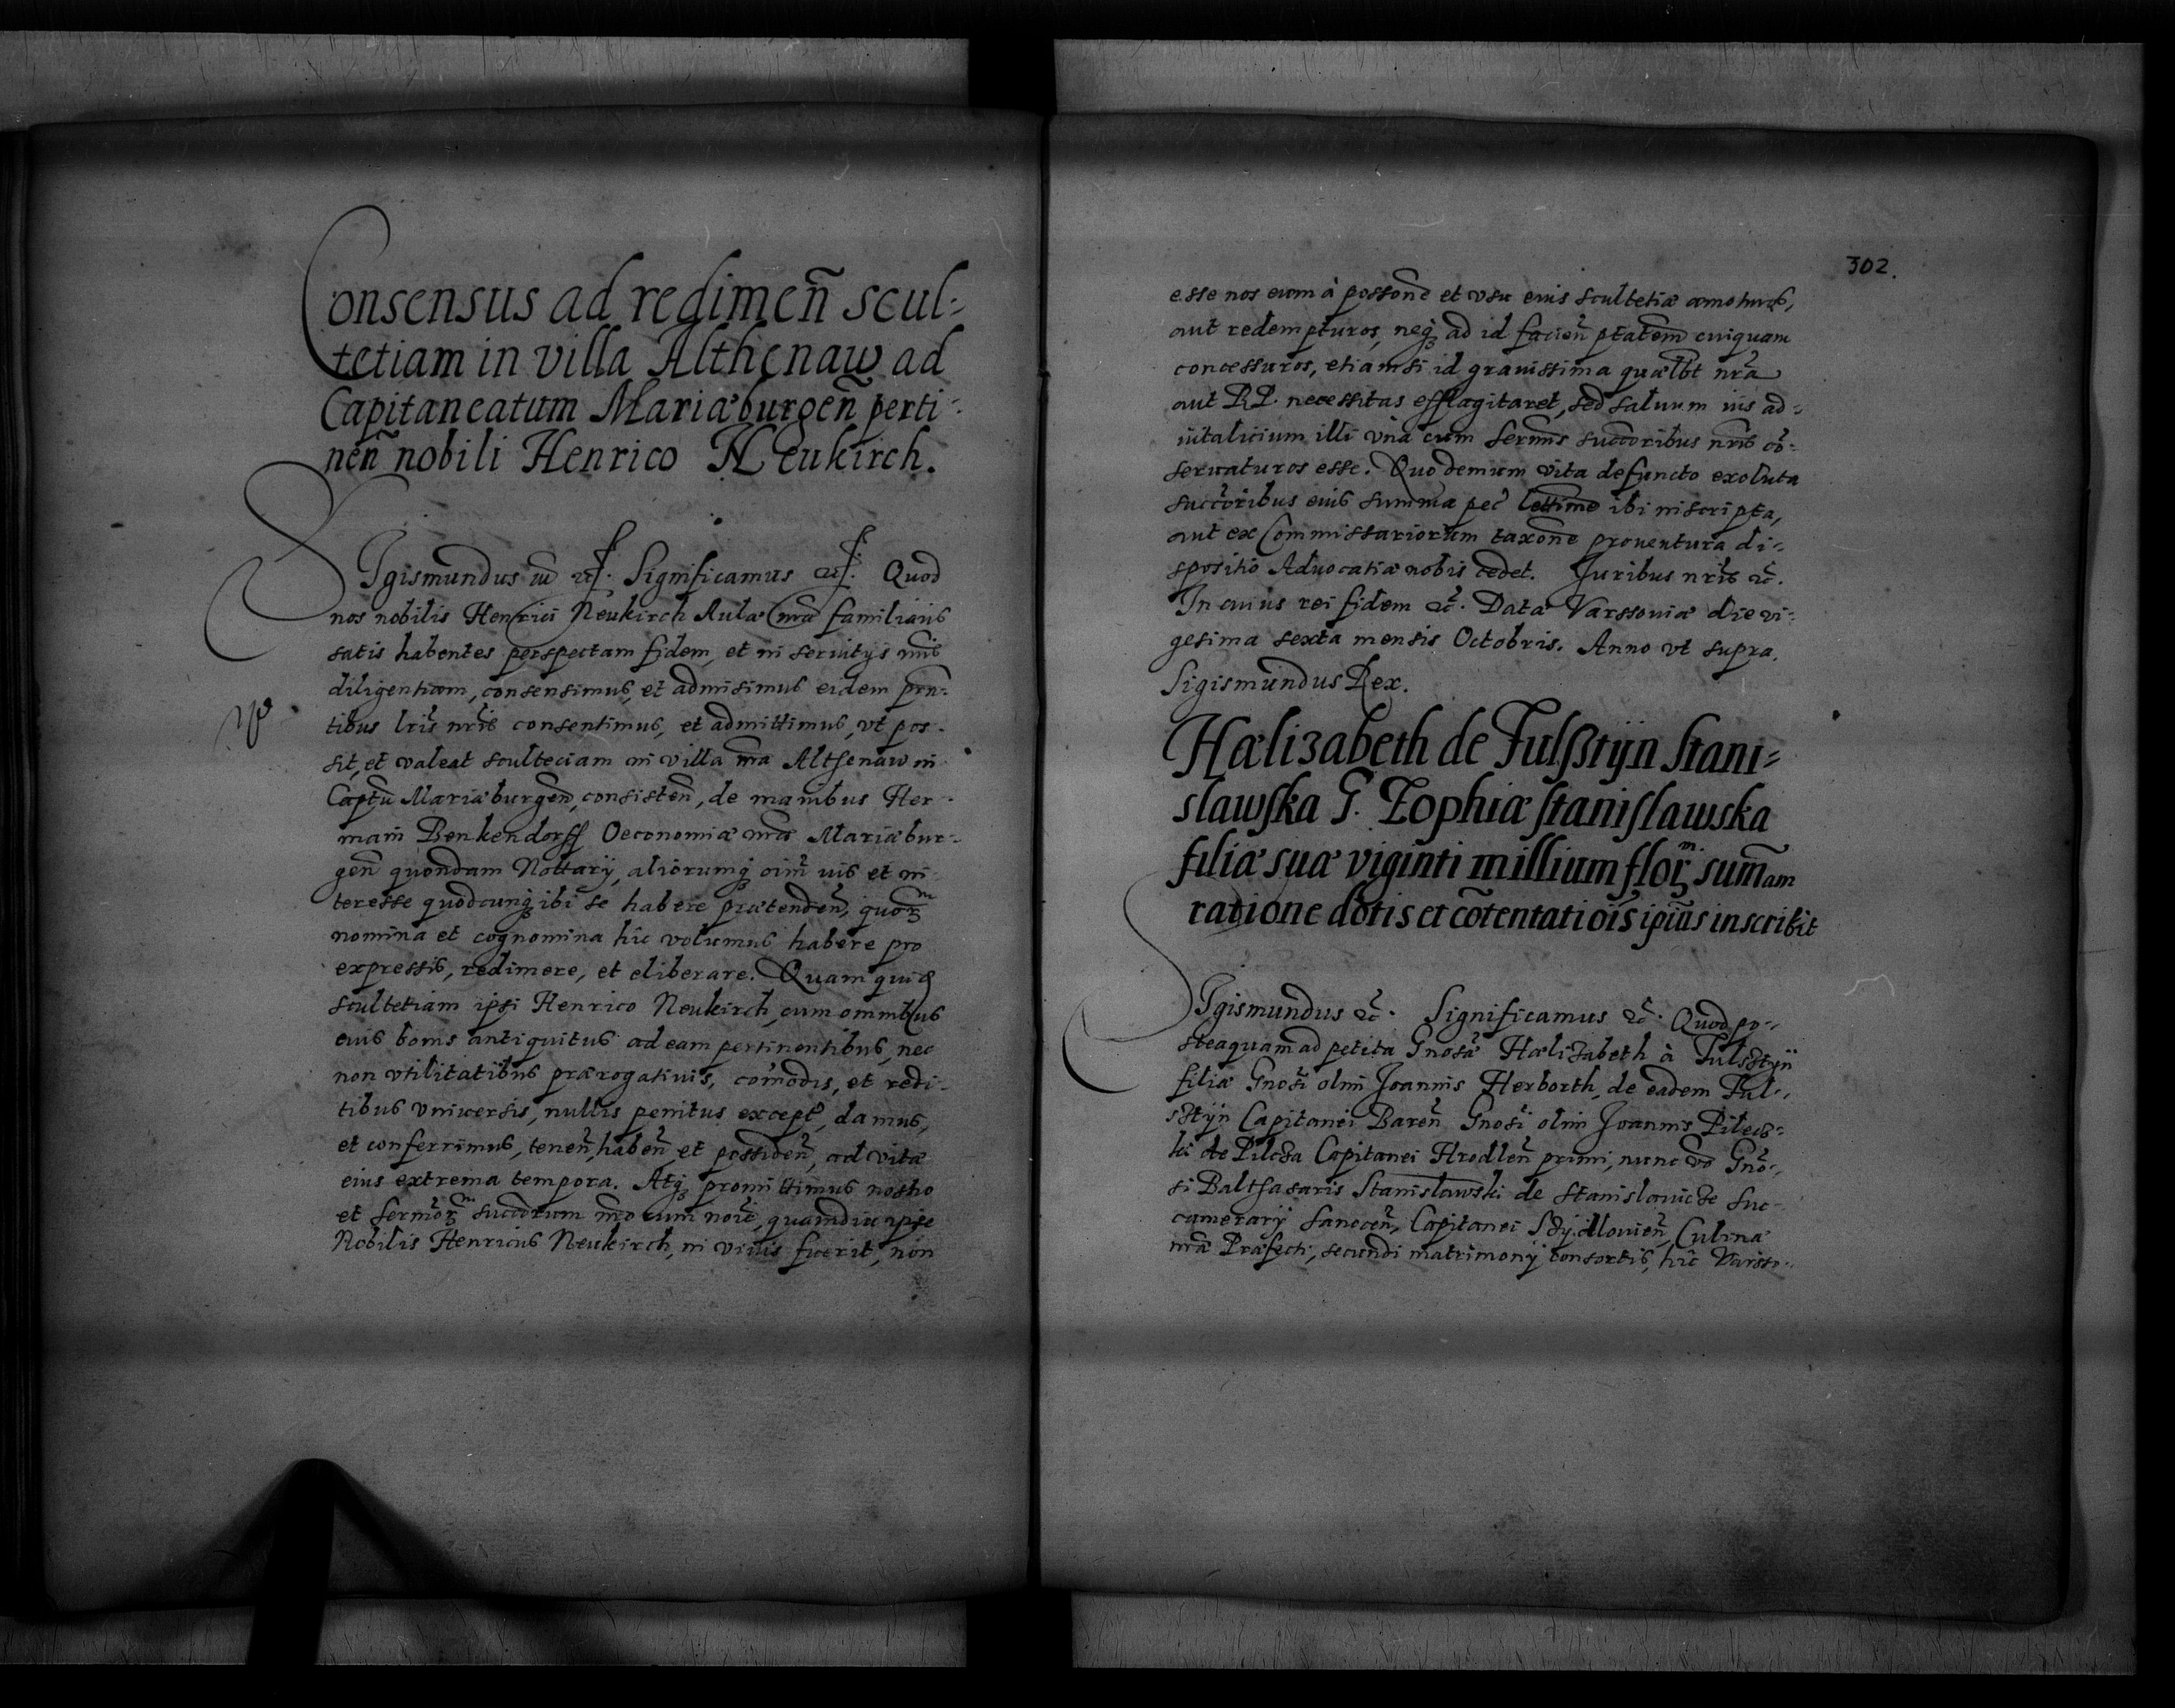 Consensus ad redimen̄ scul-
tetiam in villa Althenaw ad
Capitaneatum Mariæburgen̄ perti-
nen̄ nobili Henrico Neukirch.
Sigismundus Significamus Quod
nos nobilis Henrici Neukirch Aulæ nr̄æ familiaris
satis habentes perspectam fidem, et in seruitys nr̄is
diligentiam, consensimus, et admisimus eidem prn̄-
tibus lris nris consentimus, et admittimus, vt pos-
sit, et valeat scultetiam in villa nr̄a Althenaw in
Captu Mariæburgen̄, consisten̄, de manibus Her-
mani Benkendorff Oeconomiæ nr̄æ Mariæbur-
gen̄ quondam Nottarÿ, aliorumq̨ oim̄ ius et in-
teresse quodcunq̨ ibi se habere prætenden̄, quorum
nomina et cognomina hîc volumus habere pro
expressis, redimere, et eliberare. Quam quid
scultetiam ipsi Henrico Neukirch, cum omnibus
euis bonis antiquitus ad eam pertinentibus, nec
non vtilitatibus prærogatiuis, com̄odis, et redi-
tibus vniuersis, nullis penitus except, damus,
et conferrimus, tenen̄, haben̄ et possiden̄, ad vitæ
eius extrema tempora. Atq̨ promittimus nostro
et serm̄or succorum nr̄o eum noīe, quamdiu ipse
Nobilis Henricus Neukirch, in viuis fuerit, non
302.
esse nos eum à posson̄e et vsu euis scultetiæ amoturos,
aut redempturos, neq̨ ad id facien̄ ptatem̄ cuiquam
concessuros, etiamsi id grauissima quælbt nr̄a
aut RP. necessitas efflagitaret, sed saluum ius ad-
uitalicium illi vnà cum serm̄is succoribus nris ob-
seruaturos esse. Quo demum vita defuncto exoluta
succoribus euis summa pec̄ lettime ibi inscripta,
aut ex Commissariorum taxon̄e prouentura di-
spositio Aduocatiæ nobis cedet. Juribus nris &c̄.
In cuius rei fidem &c̄. Datæ Varssouiæ die vi-
gesima sexta mensis Octobris. Anno vt supra.
Sigismundus Rex.
Hælizabeth de Fulßtÿn Stani-
slawska G. Zophiæ Stanislawska
filiæ suæ viginti millium flor̄ sum̄am
ratione dotis et cōtentatiois ipius inscribit
Sigismundus &c̄. Significamus &c̄. Quod po-
steaquam ad petita Gnosæ Hælizabeth à Fulsztyn
filiæ Gnosi olim Joannis Herborth, de eadem Ful-
sztÿn Capitanei Baren̄ Gnosi olim Joannis Pilecz-
ki de Pilcza Capitanei Hrodlen̄ primi, nunc vo Gno-
si Balthasaris Stanislawski de Stanislauicze Suc-
camerarÿ Sanocen̄, Capitanei Sÿdlouien̄, Culinæ
nr̄æ Præfecti, secundi matrimonÿ consortis, hîc Varsso-